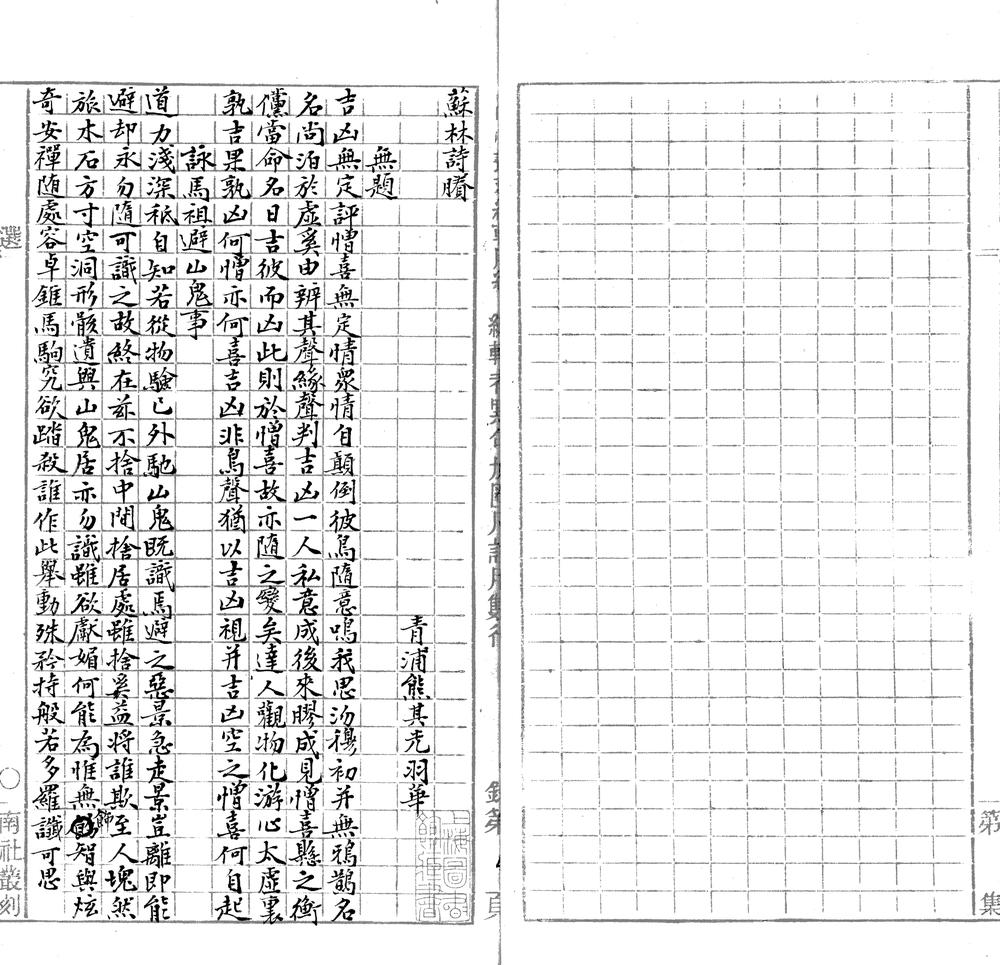 蘇林詩賸
青浦熊其光羽華
無題
吉凶無定評憎喜無定情衆情自顛倒彼鳥隨意鳴我思沕穆初并無鴉鵲名
名尚泊於虛奚由辨其聲緣聲判吉凶一人私意成後來膠成見憎喜懸之衡
儻當命名日吉彼而凶此則於憎喜故亦隨之變矣達人觀物化游心太虛裏
孰吉果孰凶何憎亦何喜吉凶非鳥聲猶以吉凶視并吉凶空之憎喜何自起
詠馬祖避山鬼事
道力淺深祇自知若從物驗已外馳山鬼既識焉避之惡景急走景豈離即能
避却永勿隨可識之故終在茲不捨中間捨居處雖捨奚益將誰欺至人塊然
旅木石方寸空洞形骸遺與山鬼居亦勿識雖欲獻媚何能為惟無飾智與炫
奇安禪随處容卓錐馬駒究欲踏殺誰作此舉動殊矜持般若多羅讖可思
選
南社叢刻
第
頁
第
集